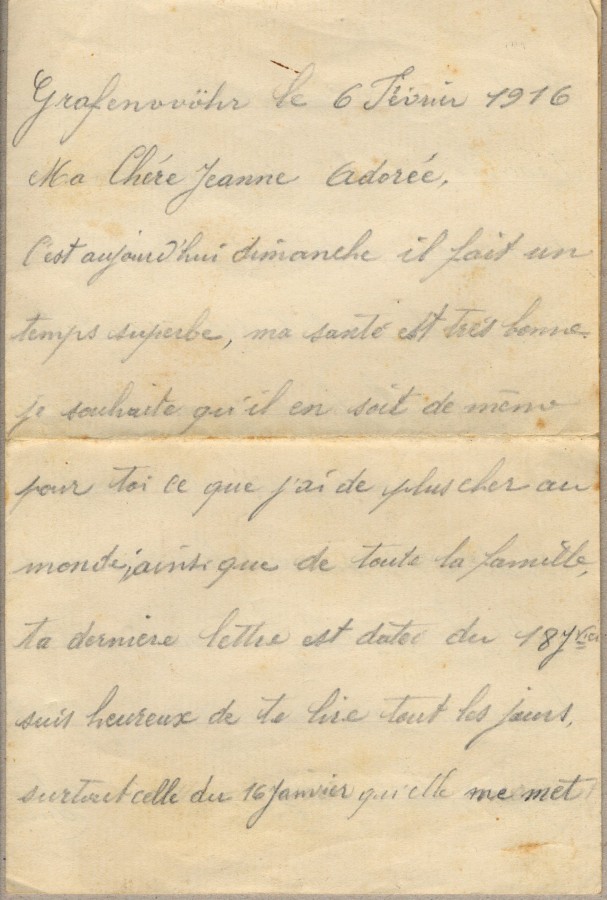 Grafenwöhr le 6 Février 1916
Ma Chére Jeanne Adorée,
C'est aujourd'hui dimanche il fait un
temps superbe, ma santé est trés bonne
je souhaite qu'il en soit de même
pour toi ce que j'ai de plus cher au
monde, ainsi que de toute la famille,
ta derniere lettre est datée du 18 Jvier
suis heureux de te lire tout les jours,
surtout celle du 16 Janvier qu'elle me met